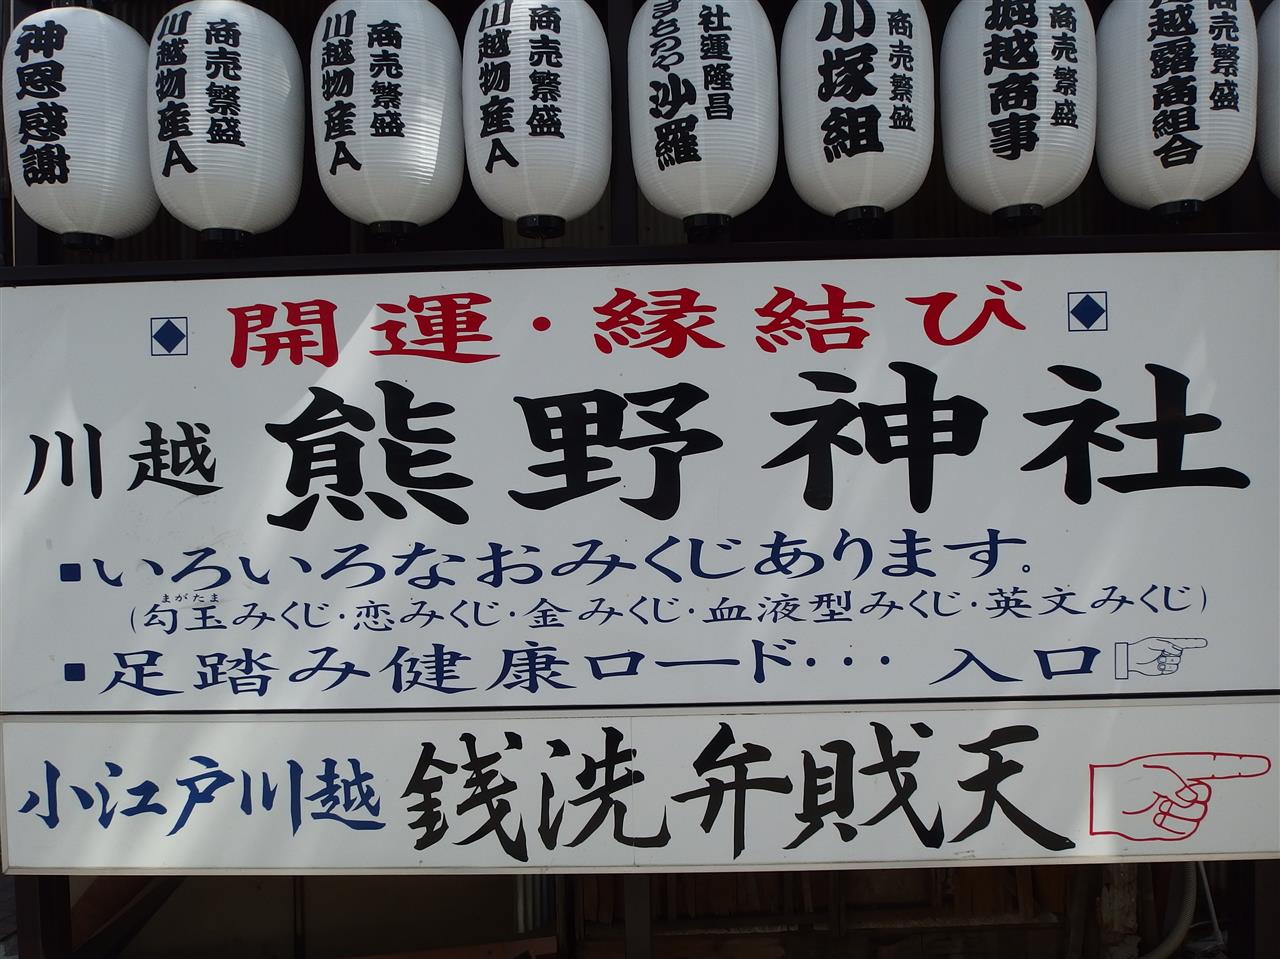 神恩感謝
商売繁盛
川越物産A
商売繁盛
川越物産A
商売繁盛
川越物産A
社運隆昌
沙羅
商売繁盛
小塚組
商売繁盛
堀越商事
商売繁盛
越露商組合
開運・縁結び
川越 熊野神社
▪いろいろなおみくじあります。
まがたま
(勾玉みくじ・恋みくじ・金みくじ・血液型みくじ・英文みくじ)
▪足踏み健康ロード・・・ 入口
小江戸川越 銭洗弁財天